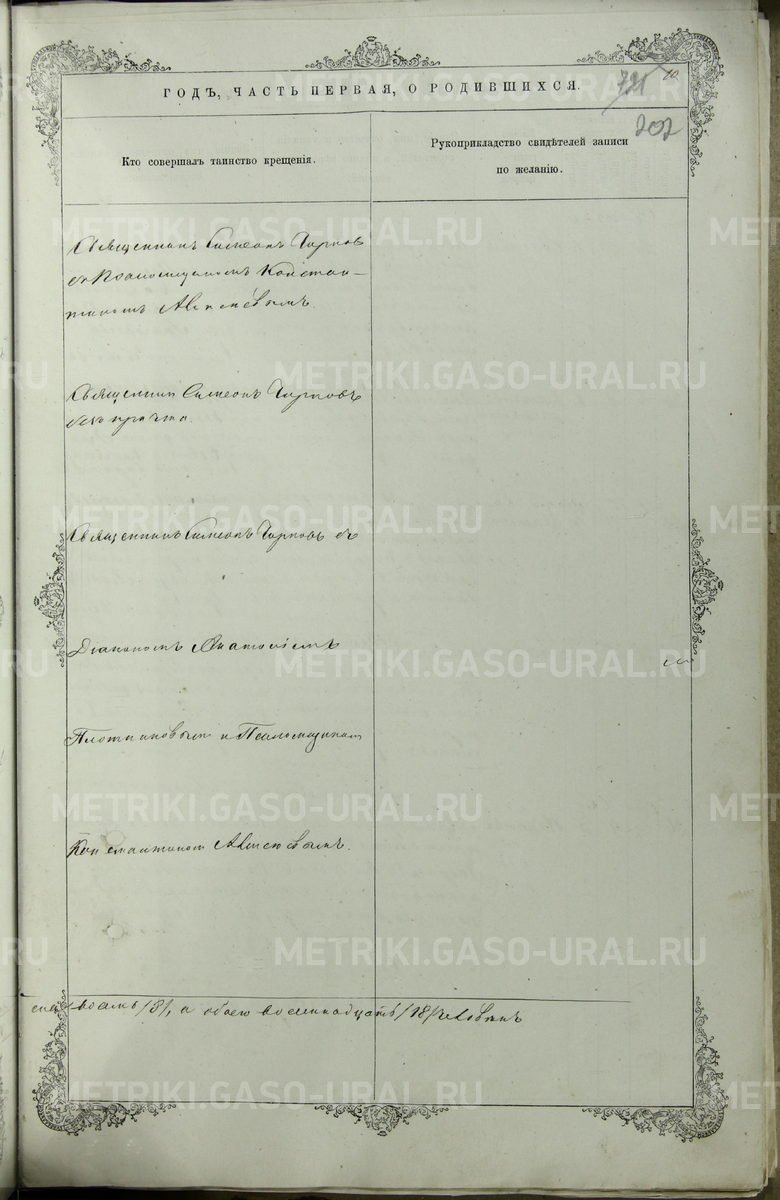 ГОДЪ, ЧАСТЬ ПЕРВАЯ, О РОДИВШИХСЯ.
10
202
Кто совершалъ таинство крещенія.
Рукоприкладство свидѣтелей записи
по желанію.
Священникъ Симеонъ Горновъ
съ Псаломщикомъ Констан-
тиномъ
Священникъ Симеонъ Горновъ
безъ причта.
Священникъ Симеонъ Горновъ съ
Діакономъ Анатоліемъ
Плотниковымъ и Псаломщикомъ
Константиномъ
восемь /8/, а обоего восемнадцать /18/ человѣкъ
METRIKI.GASO-URAL.RU